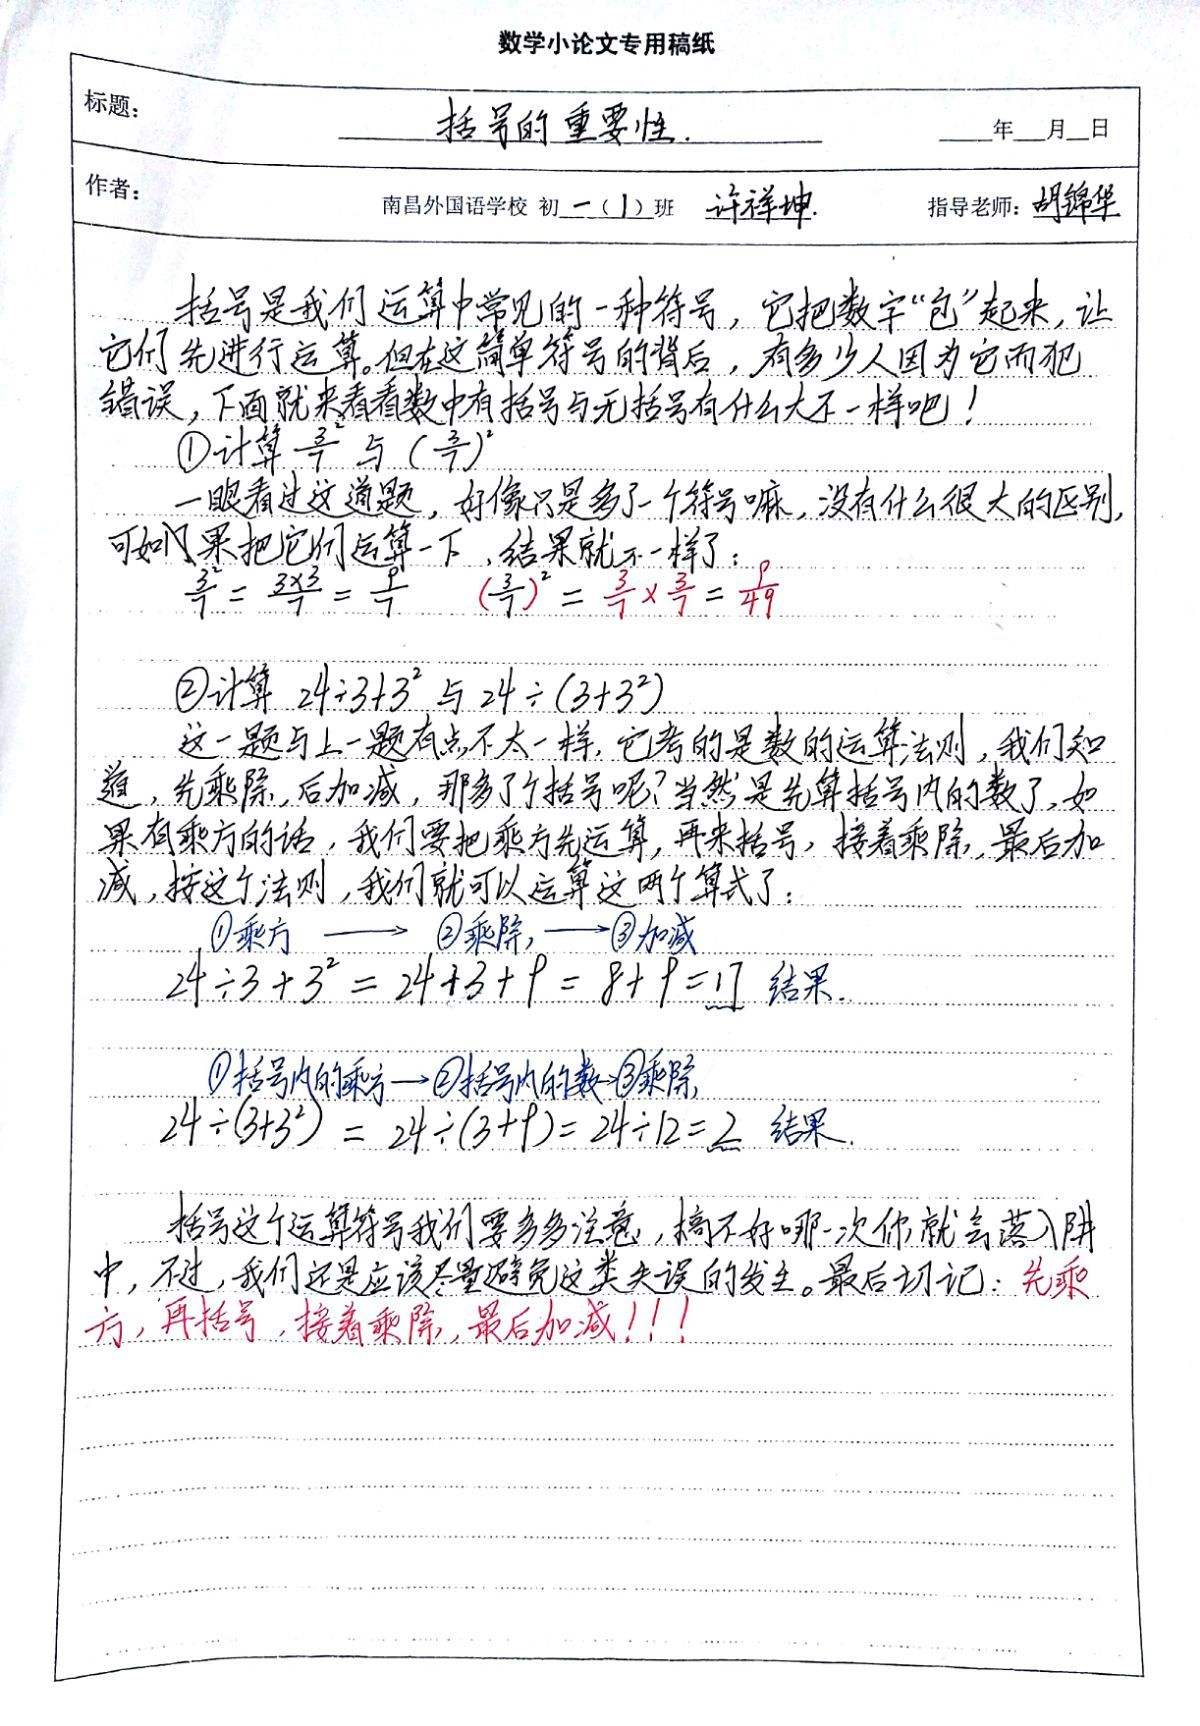 数学小论文专用稿纸
标题： 括号的重要性. ____年___月__日
作者： 南昌外国语学校 初一（1）班 许祥坤. 指导老师：胡锦华
括号是我们运算中常见的一种符号，它把数字“包”起来，让
它们先进行运算。但在这简单符号的背后，有多少人因为它而犯
错误，下面就来看看数中有括号与无括号有什么大不一样吧！
①计算 3²/7 与 (3/7)²
一眼看过这道题，好像只是多了一个符号嘛，没有什么很大的区别，
可如果把它们运算一下，结果就不一样了：
3²/7 = 3×3/7 = 9/7 (3/7)² = 3/7 × 3/7 = 9/49
②计算 24÷3+3² 与 24÷(3+3²)
这一题与上一题有点不太一样，它考的是数的运算法则，我们知
道，先乘除，后加减，那多了个括号呢？当然是先算括号内的数了，如
果有乘方的话，我们要把乘方先运算，再来括号，接着乘除，最后加
减，按这个法则，我们就可以运算这两个算式了：
①乘方 → ②乘除， → ③加减
24÷3+3² = 24÷3+9 = 8+9 = 17 结果.
①括号内的乘方→②括号内的数→③乘除，
24÷(3+3²) = 24÷(3+9) = 24÷12 = 2 结果.
括号这个运算符号我们要多多注意，搞不好哪一次你就会落入阱
中，不过，我们还是应该尽量避免这类失误的发生。最后切记：先乘
方，再括号，接着乘除，最后加减！！！